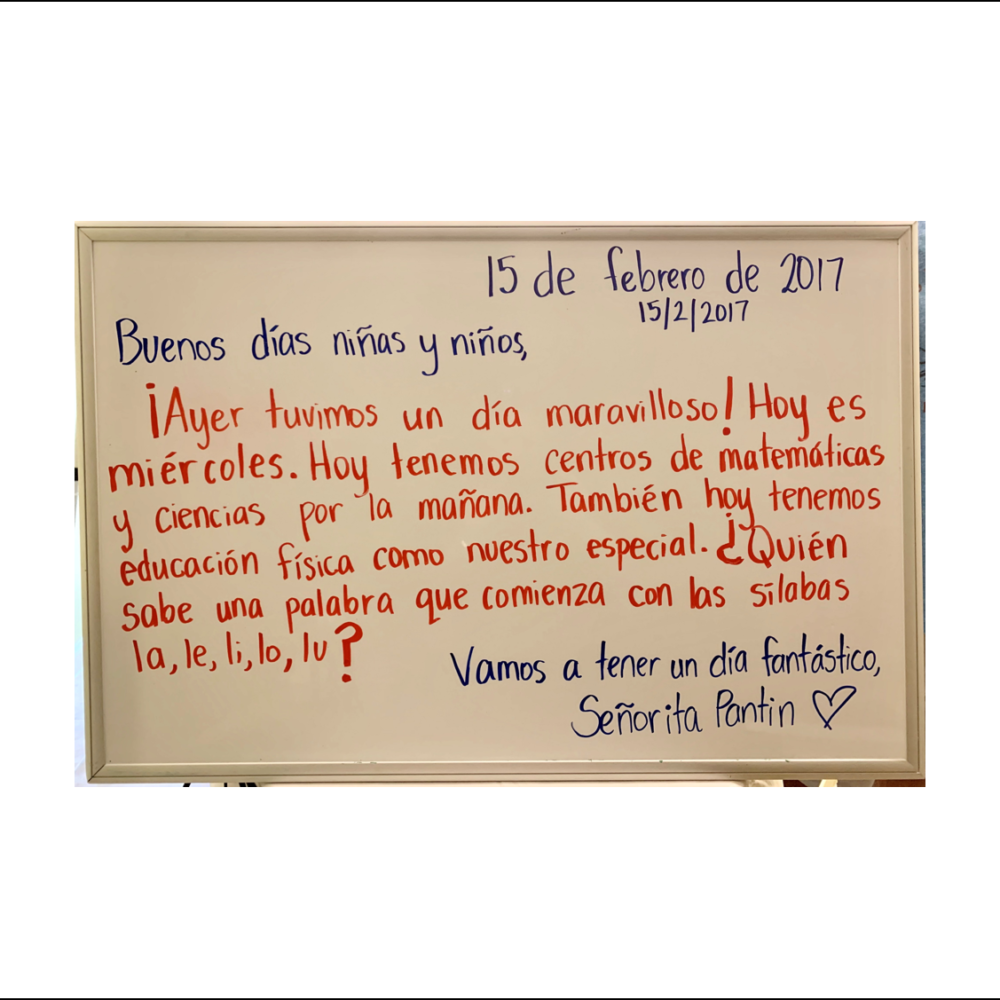 15 de febrero de 2017
15/2/2017
Buenos días niñas y niños,
¡Ayer tuvimos un día maravilloso! Hoy es
miércoles. Hoy tenemos centros de matemáticas
y ciencias por la mañana. También hoy tenemos
educación física como nuestro especial. ¿Quién
sabe una palabra que comienza con las sílabas
la, le, li, lo, lu?
Vamos a tener un día fantástico,
Señorita Pantin ♡